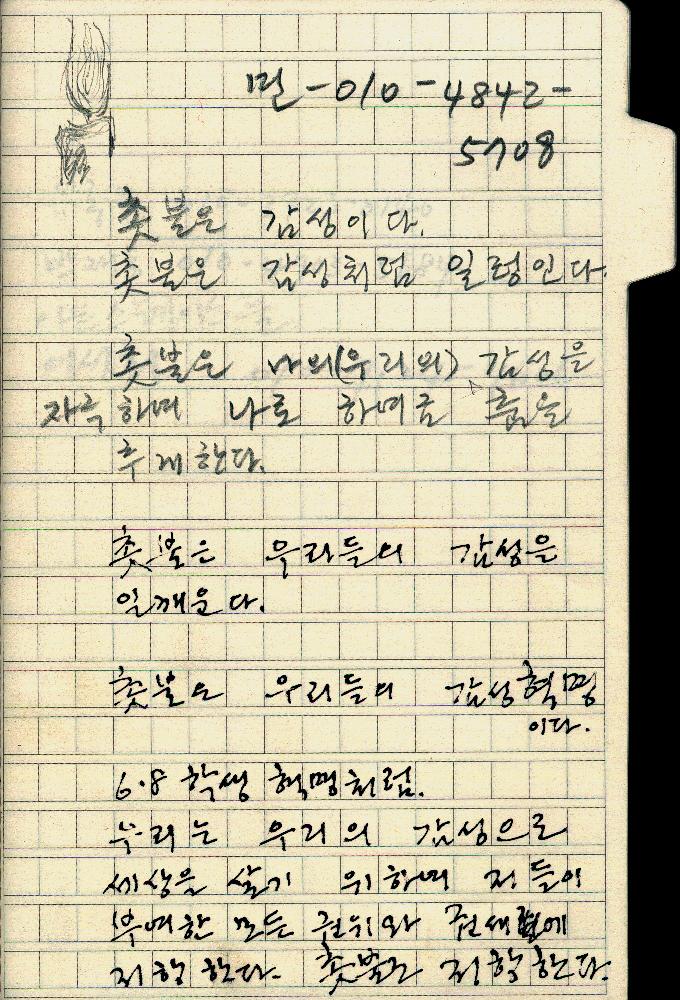 면-010-4842-
5708
촛불은 감성이다.
촛불은 감성처럼 일렁인다.
촛불은 나의(우리의) 감성을
자극하며 나로 하여금 춤을
추게한다.
촛불은 우리들의 감성을
일깨운다.
촛불은 우리들의 감성혁명
이다.
6.8 학생 혁명처럼.
우리는 우리의 감성으로
세상을 살기 위하여 저들이
부여한 모든 권위와 권세에
저항한다. 촛불은 저항한다.